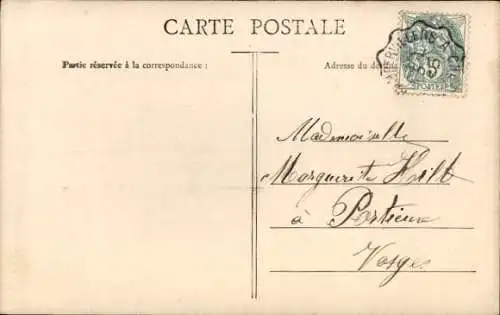 CARTE POSTALE
Partie réservée à la correspondance :
Adresse du
POSTES
Mademoiselle
Marguerite Hilt
à Portieux
Vosges